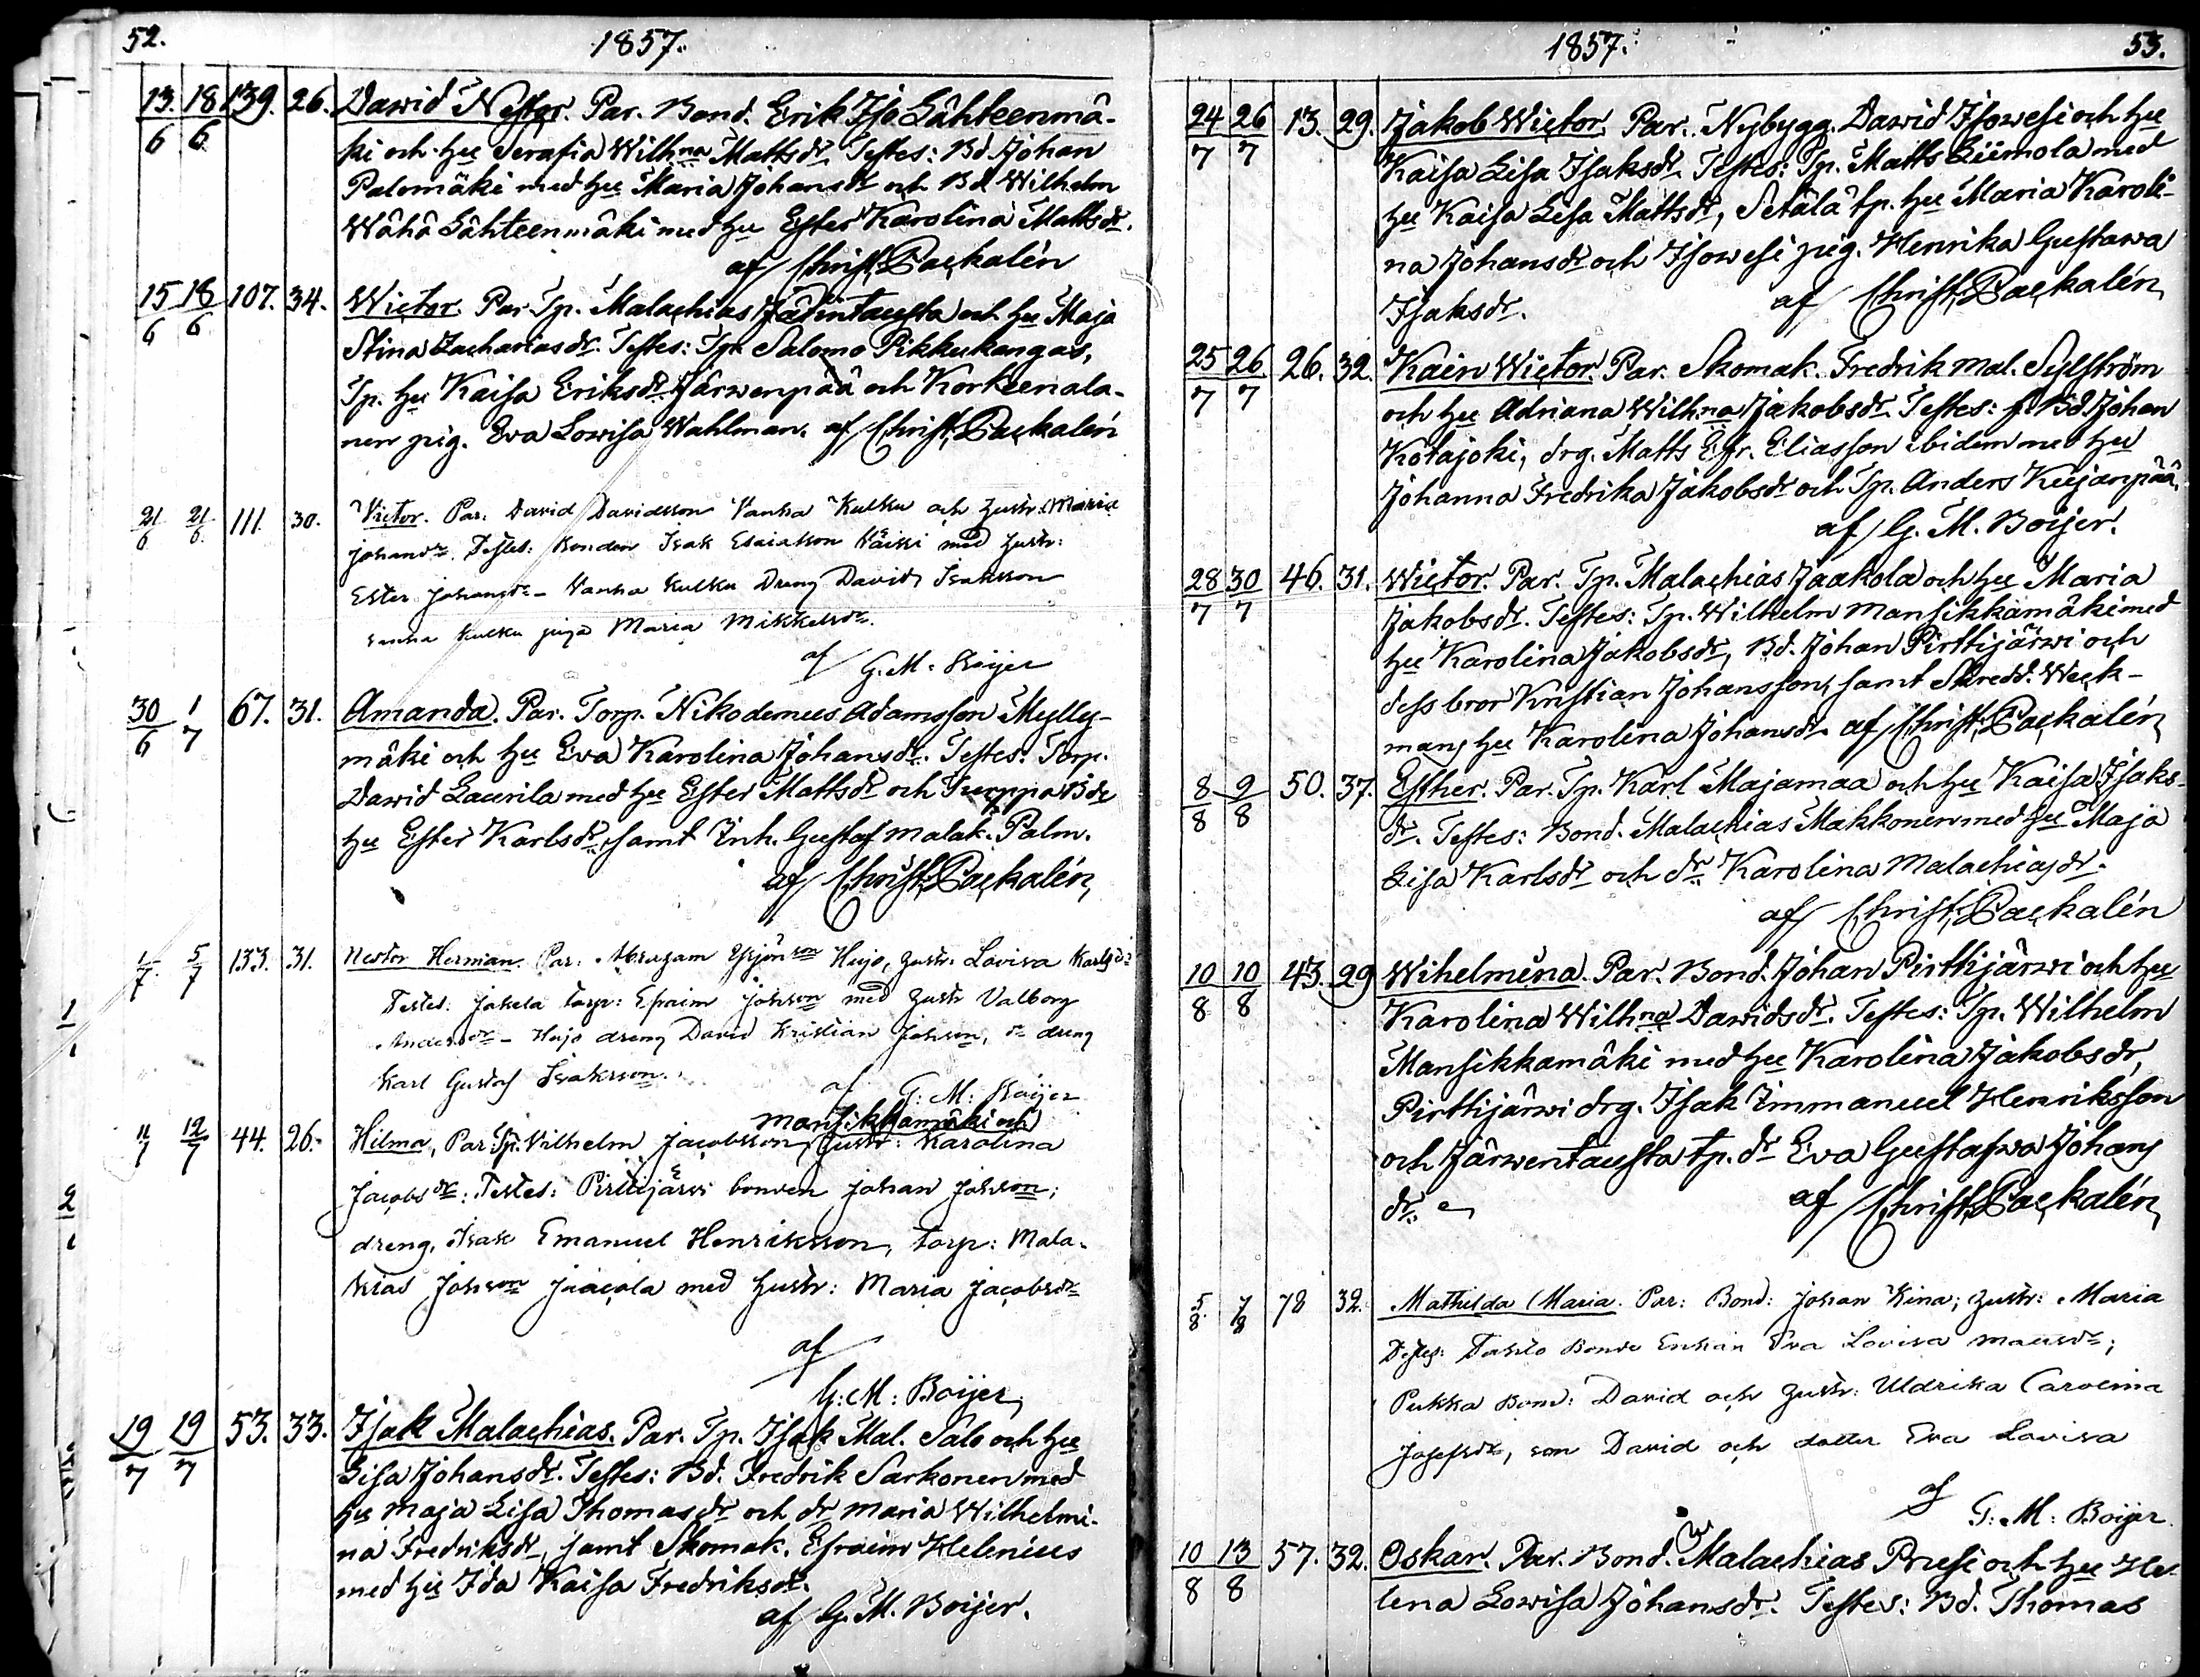 52.
1857.
13/6 18/6 139. 26. Dawid Nestor. Par. Bond. Erik Iso Lähteenmä-
ki och hu Serafia Wilhna Mattsdr. Testes: Bd Johan
Palomäki med hu Maria Johansdr och Bd Wilhelm
Wähä Lähteenmäki med hu Ester Karolina Mattsdr.
af Christ. Packalén
15/6 18/6 107. 34. Wictor. Par. Tp. Malachias och hu Maja
Stina Zachariasdr. Testes: Tp. Salomo Pikkukangas,
Tp. hu Kaisa Eriksdr. Järwenpää och Korkeenala-
nen pig. Eva Lowisa Wahlman. af Christ. Packalén
21/6 21/6 111. 30. Victor. Par. David Davidsson Vanha Kulku och hustr. Maria
Johansdr. Testes: Bonden Isak Esaiasson med hustr:
Ester Johansdr - Vanha Kulku Dreng David Isaksson
Vanha Kulku piga Maria Mikkelsdr.
af G. M. Boijer
30/6 1/7 67. 31. Amanda. Par. Torp. Nikodemus Adamsson Mylly-
mäki och hu Eva Karolina Johansdr. Testes: Torp.
Dawid Laurila med hu Ester Mattsdr och Turppa Bde
hu Ester Karlsdr, samt Inh. Gustaf Malak. Palm.
af Christ. Packalén
1/7 5/7 133. 31. Nestor Herman. Par: Abraham Heijo, hustr. Lovisa Karlsdr
Testes: Jakola torp: Efraim Johsson med hustr Valborg
Andersdr - Heijo dreng David Kristian Johsson, dr dreng
Karl Gustaf Isaksson.
af G: M: Boijer
Mansikkamäki och
11/7 12/7 44. 26. Hilma, Par. Tp. Vilhelm Jacobsson, hustr: Karolina
Jacobsdr: Testes: Pirttijärvi bonden Johan Johsson;
dreng. Isak Emanuel Henriksson, torp: Mala-
kias Johsson Jaacola med hustr: Maria Jacobsdr
af
G: M: Boijer
19/7 19/7 53. 33. Isak Malachias. Par. Tp. Isak Mal. Salo och hu
Lisa Johansdr. Testes: Bd. Fredrik Sarkonen med
hu Maja Lisa Thomasdr och dr Maria Wilhelmi-
na Fredriksdr, samt Skomak. Efraim Helenius
med hu Ida Kaisa Fredriksdr.
af G. M. Boijer.
1857.
53.
24/7 26/7 13. 29. Jakob Wictor. Par. Nybygg. Dawid Isowesi och hu
Kaisa Lisa Isaksdr. Testes: Tp. Matts Liimola med
hu Kaisa Lisa Mattsdr, Setälä tp. hu Maria Karoli-
na Johansdr och Isowesi pig. Henrika Gustawa
Isaksdr. af Christ. Packalén
25/7 26/7 26. 32. Kain Wictor. Par. Skomak. Fredrik Mal. Sylström
och hu Adriana Wilhna Jakobsdr. Testes: f. Bd Johan
Kotajoki, drg. Matts Efr. Eliasson ibidem med hu
Johanna Fredrika Jakobsdr och Tp. Anders Kujanpää.
af G. M. Boijer.
28/7 30/7 46. 31. Wictor. Par. Tp. Malachias Jaakola och hu Maria
Jakobsdr. Testes: Tp. Wilhelm Mansikkamäki med
hu Karolina Jakobsdr, Bd. Johan Pirttijärwi och
dess bror Kristian Johansson, samt Skredd. Weck-
mans hu Karolina Johansdr. af Christ. Packalén
8/8 9/8 50. 37. Esther. Par. Tp. Karl Majamaa och hu Kaisa Isaks-
dr. Testes: Bond. Malachias Makkonen med hu Maja
Lisa Karlsdr och dr. Karolina Malachiasdr.
af Christ. Packalén
10/8 10/8 43. 29 Wihelmina. Par. Bond. Johan Pirttijärwi och hu
Karolina Wilhna Dawidsdr. Testes: Tp. Wilhelm
Mansikkamäki med hu Karolina Jakobsdr,
Pirttijärwi drg. Isak Immanuel Henriksson
och Järwentausta tp. dr Eva Gustafwa Johans
dr. af Christ. Packalén
5/8 7/8 78 32. Mathilda Maria. Par: Bond: Johan Kina; hustr: Maria
Testes: Bonde Enkan Eva Lovisa
Pukka Bond: David och hustr: Uldrika Carolina
Josefsdr, son David och dotter Eva Lovisa
af G: M: Boijer
10/8 13/8 57. 32. Oskar. Par. Bond. Malachias Prusi och hu He-
lena Lowisa Johansdr. Testes: Bd. Thomas